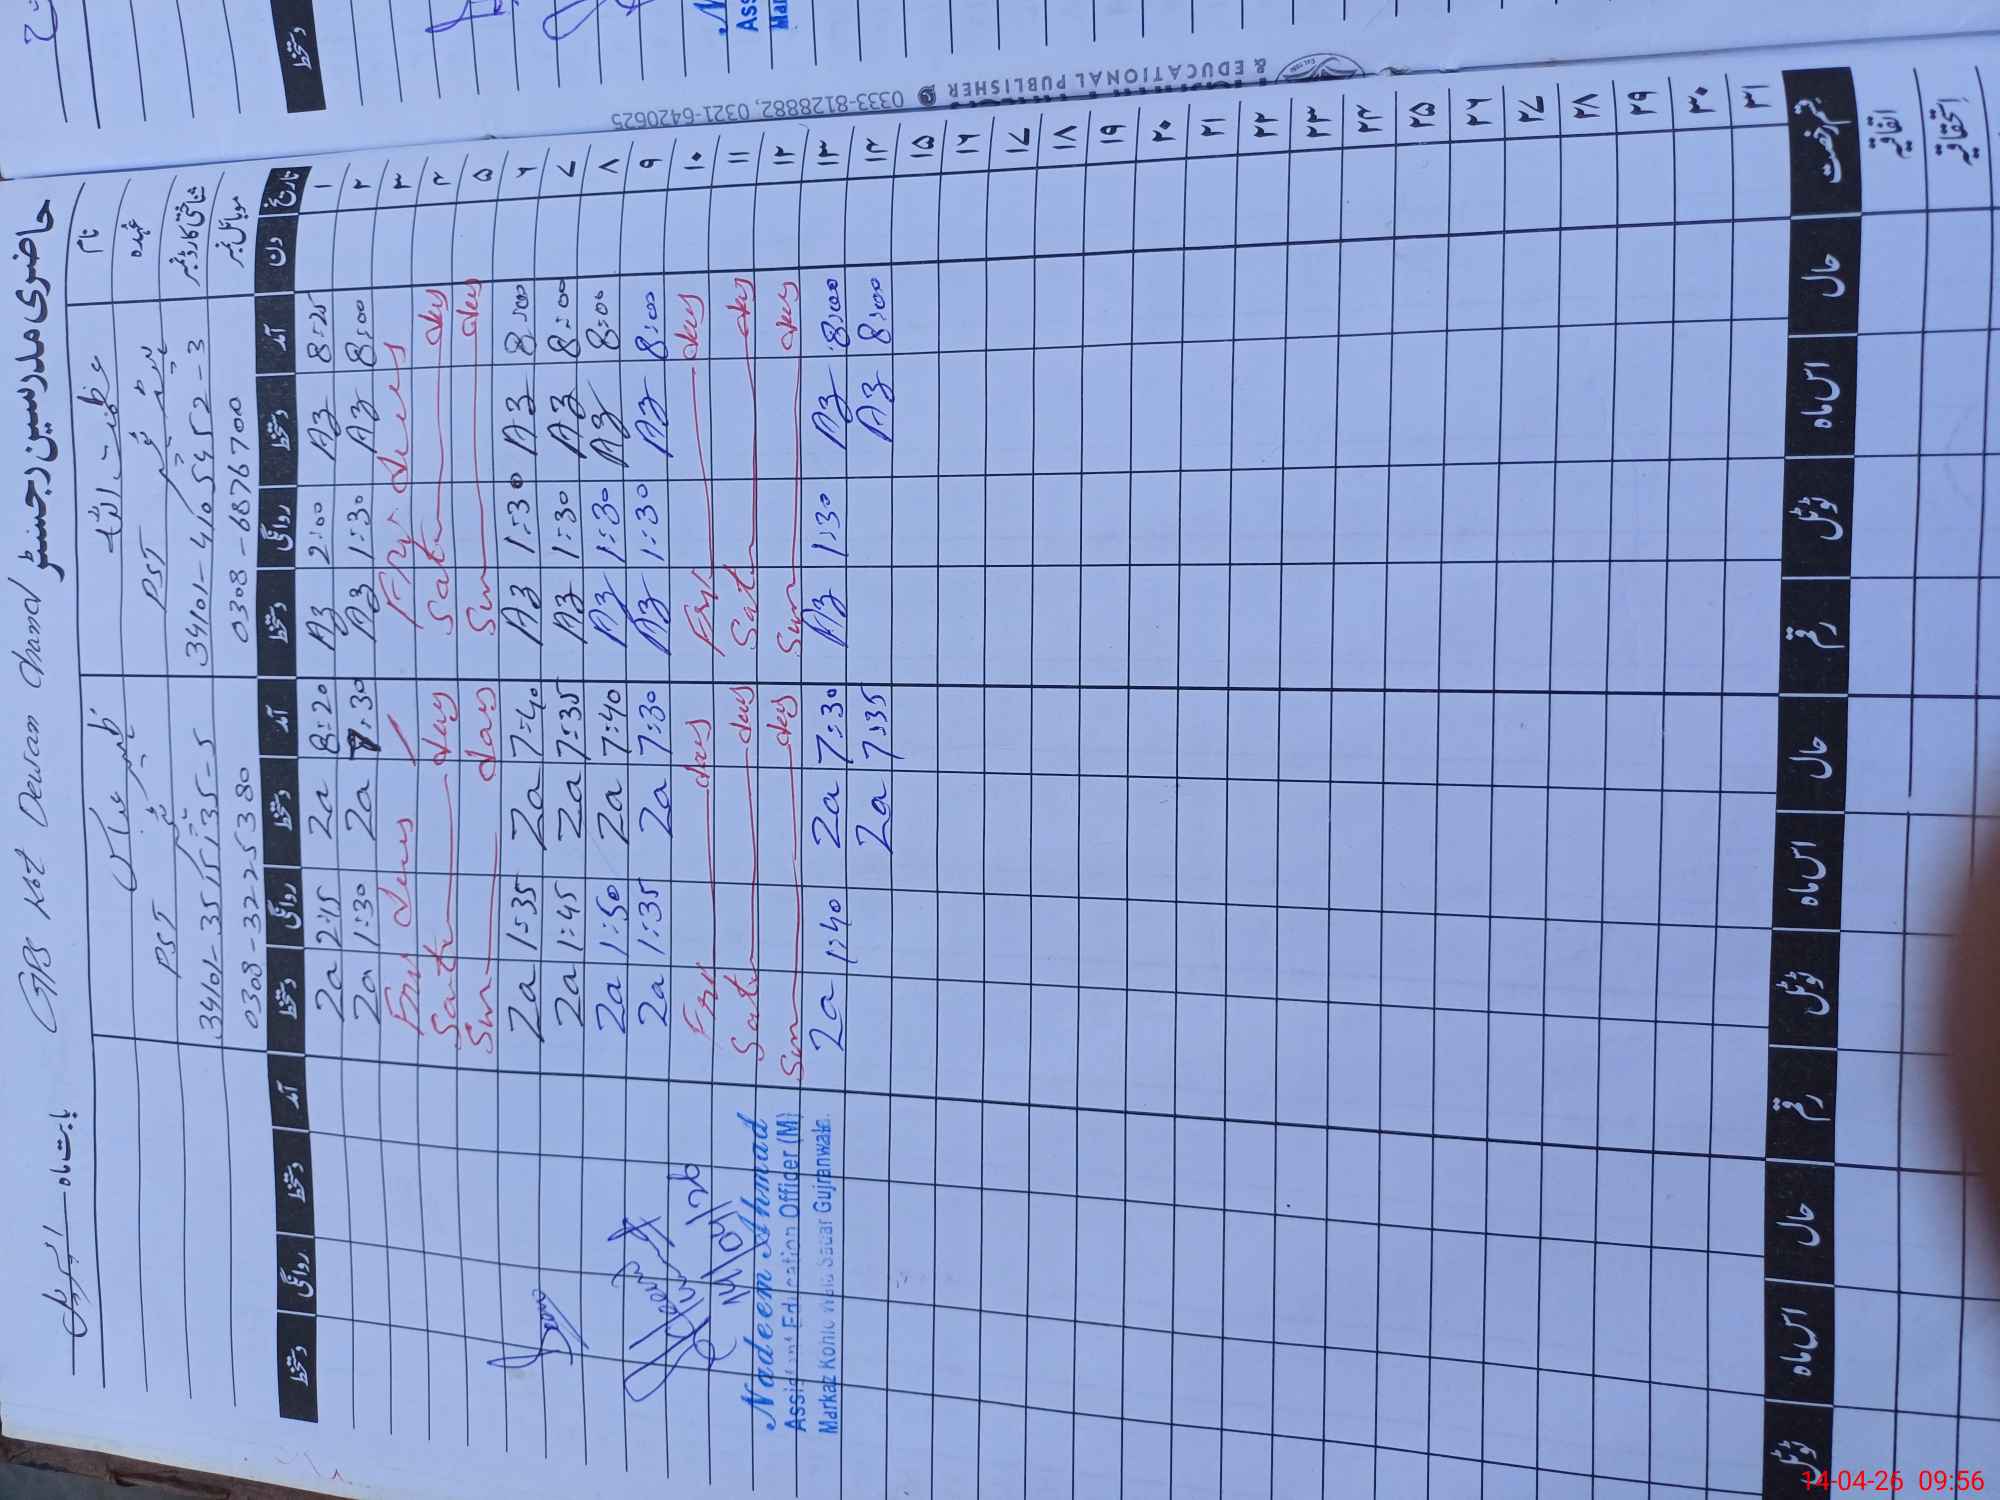 حاضری مدرسین رجسٹر GPS Kot Dewan Chand بابت ماہ اپریل
نام عظمت اللہ ظہیر عباس
عہدہ PST PST
شناختی کارڈ نمبر 34101-4105452-3 34101-3515135-5
موبائل نمبر 0308-6876700 0308-3225380
تاریخ دن آمد دستخط روانگی دستخط آمد دستخط روانگی دستخط آمد دستخط روانگی دستخط
۱ 8:25 AZ 2:00 AZ 8:20 Za 2:15 Za
۲ 8:00 AZ 1:30 AZ 7:30 Za 1:30 Za
۳ Fri
۴ Sat day Sat day
۵ Sun day Sun day
۶ 8:00 AZ 1:30 AZ 7:40 Za 1:35 Za
۷ 8:00 AZ 1:30 AZ 7:35 Za 1:45 Za
۸ 8:00 AZ 1:30 AZ 7:40 Za 1:50 Za
۹ 8:00 AZ 1:30 AZ 7:30 Za 1:35 Za
۱۰ Fri day Fri day
۱۱ Sat day Sat day
۱۲ Sun day Sun day
۱۳ 8:00 AZ 1:30 AZ 7:30 Za 1:40 Za
۱۴ 8:00 AZ 7:35 Za
۱۵
۱۶
۱۷
۱۸
۱۹
۲۰
۲۱
۲۲
۲۳
۲۴
۲۵
۲۶
۲۷
۲۸
۲۹
۳۰
۳۱
14/04/26
Nadeem Ahmad
Assistant Education Officer (M)
Markaz Kohlo Wala Sadar Gujranwala.
قسم رخصت حال اس ماہ ٹوٹل رقم حال اس ماہ ٹوٹل رقم حال اس ماہ ٹوٹل
اتفاقیہ
استحقاقیہ
& EDUCATIONAL PUBLISHER 0333-8128882, 0321-6420625
دستخط
14-04-26 09:56